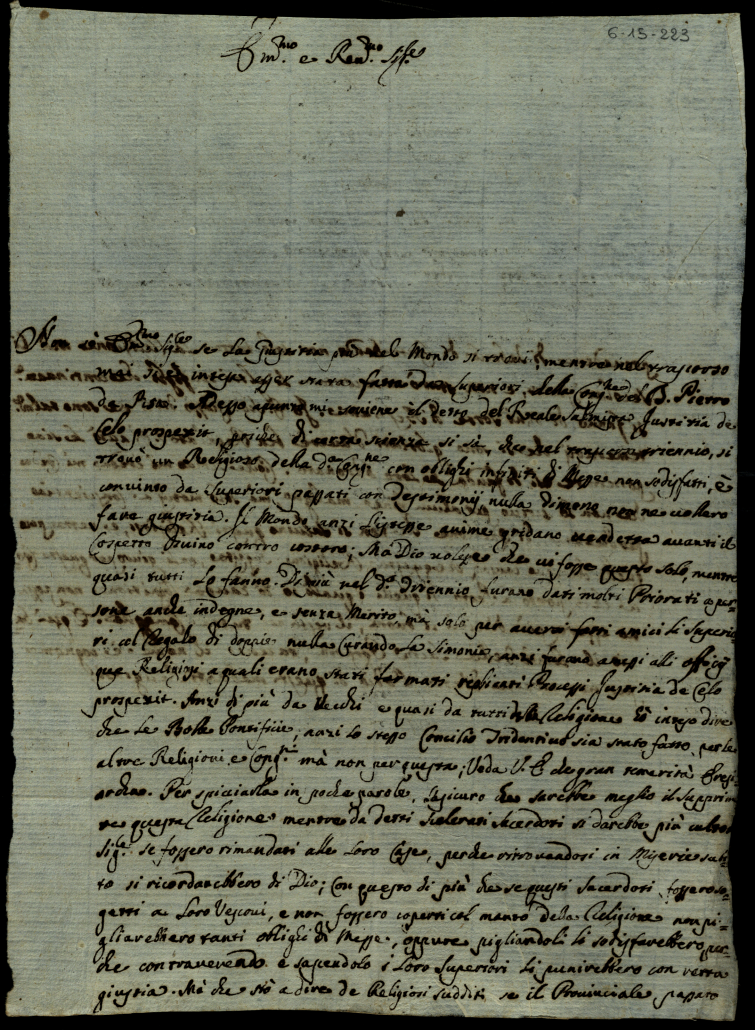 6-15-223
Em.mo e Rev.mo Sig.re
Non sò Em.mo Sig.re se la Ingiustitia più nel Mondo si trovi, mentre nel trapassato
mai si è intesa esser stata fatta da Superiori della Cong.ne del B. Pietro
da Pisa. Adesso apunto mi soviene il detto del Reale Salmista Justitia de
Celo prospexit, perche di certa scienza si sà, che nel trapassato triennio, si
trovò un Religioso della d.a Cong.ne con oblighi infiniti di Messe non sodisfatti, è
convinto da Superiori passati con Testimonij nulla dimeno non ne vollero
fare giustitia. Il Mondo anzi l'istesse anime gridano vendetta avanti il
Cospetto Divino contro costoro; Mà Dio volesse che vi fosse questo solo, mentre
quasi tutti lo fanno. Di più nel d.o Triennio furano dati molti Priorati a per-
sone anche indegne, e senza Merito, mà solo per aversi fatti amici li Superio
ri col Regalo di doppie nulla Curando la Simonia, anzi furano amessi alli officij
que Religiosi a quali erano stati formati replicati Processi Justitia de Celo
prospexit. Anzi di più da Vecchi e quasi da tutti della Religione hò inteso dire
che le Bolle Pontificie, anzi lo stesso Concilio Tridentino sia stato fatto per le
altre Religioni e Cong.ni mà non per questa; Veda V. E. che gran temerità Eresi
archa. Per spiciarla in poche parole, l'assicuro che sarebbe meglio il supprime
re questa Religione mentre da detti Scelerati Sacerdoti si darebbe più culto al
Sig.re se fossero rimandati alle Loro Case, perche ritrovandosi in Miserie sub
to si ricordarebbero di Dio; con questo di più che se questi Sacerdoti fossero so-
getti a Loro Vescovi, e non fossero coperti col manto della Religione non pi-
gliarebbero tanti oblighi di Messe, oppure pigliandoli li sodisfarebbero per-
che contravenendo e sapendolo i Loro Superiori li punirebbero con retta
giustitia. Mà che stò a dire de Religiosi sudditi se il Provinciale passato